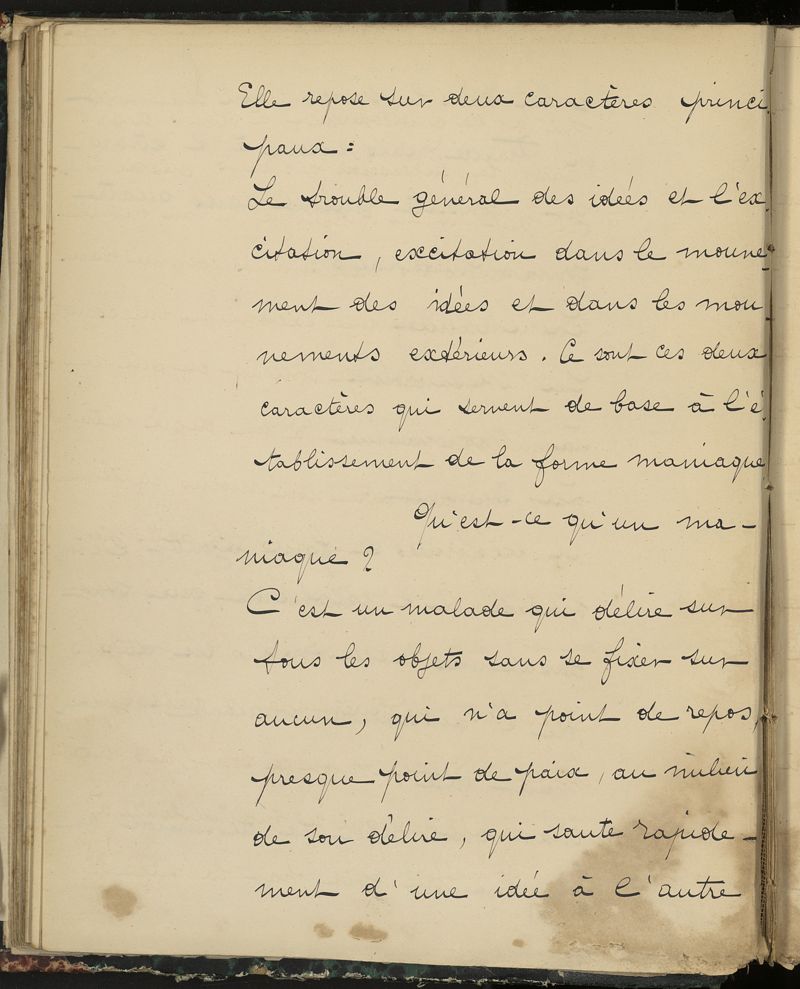 Elle repose sur deux caractères princi
paux :
Le trouble général des idées et l'ex
citation, excitation dans le mouve-
ment des idées et dans les mou
vements extérieurs. Ce sont ces deux
caractères qui servent de base à l'é
tablissement de la forme maniaque
Qu'est-ce qu'un ma-
niaque ?
C'est un malade qui délire sur
tous les objets sans se fixer sur
aucun, qui n'a point de repos,
presque point de paix, au milieu
de son délire, qui saute rapide-
ment d'une idée à l'autre